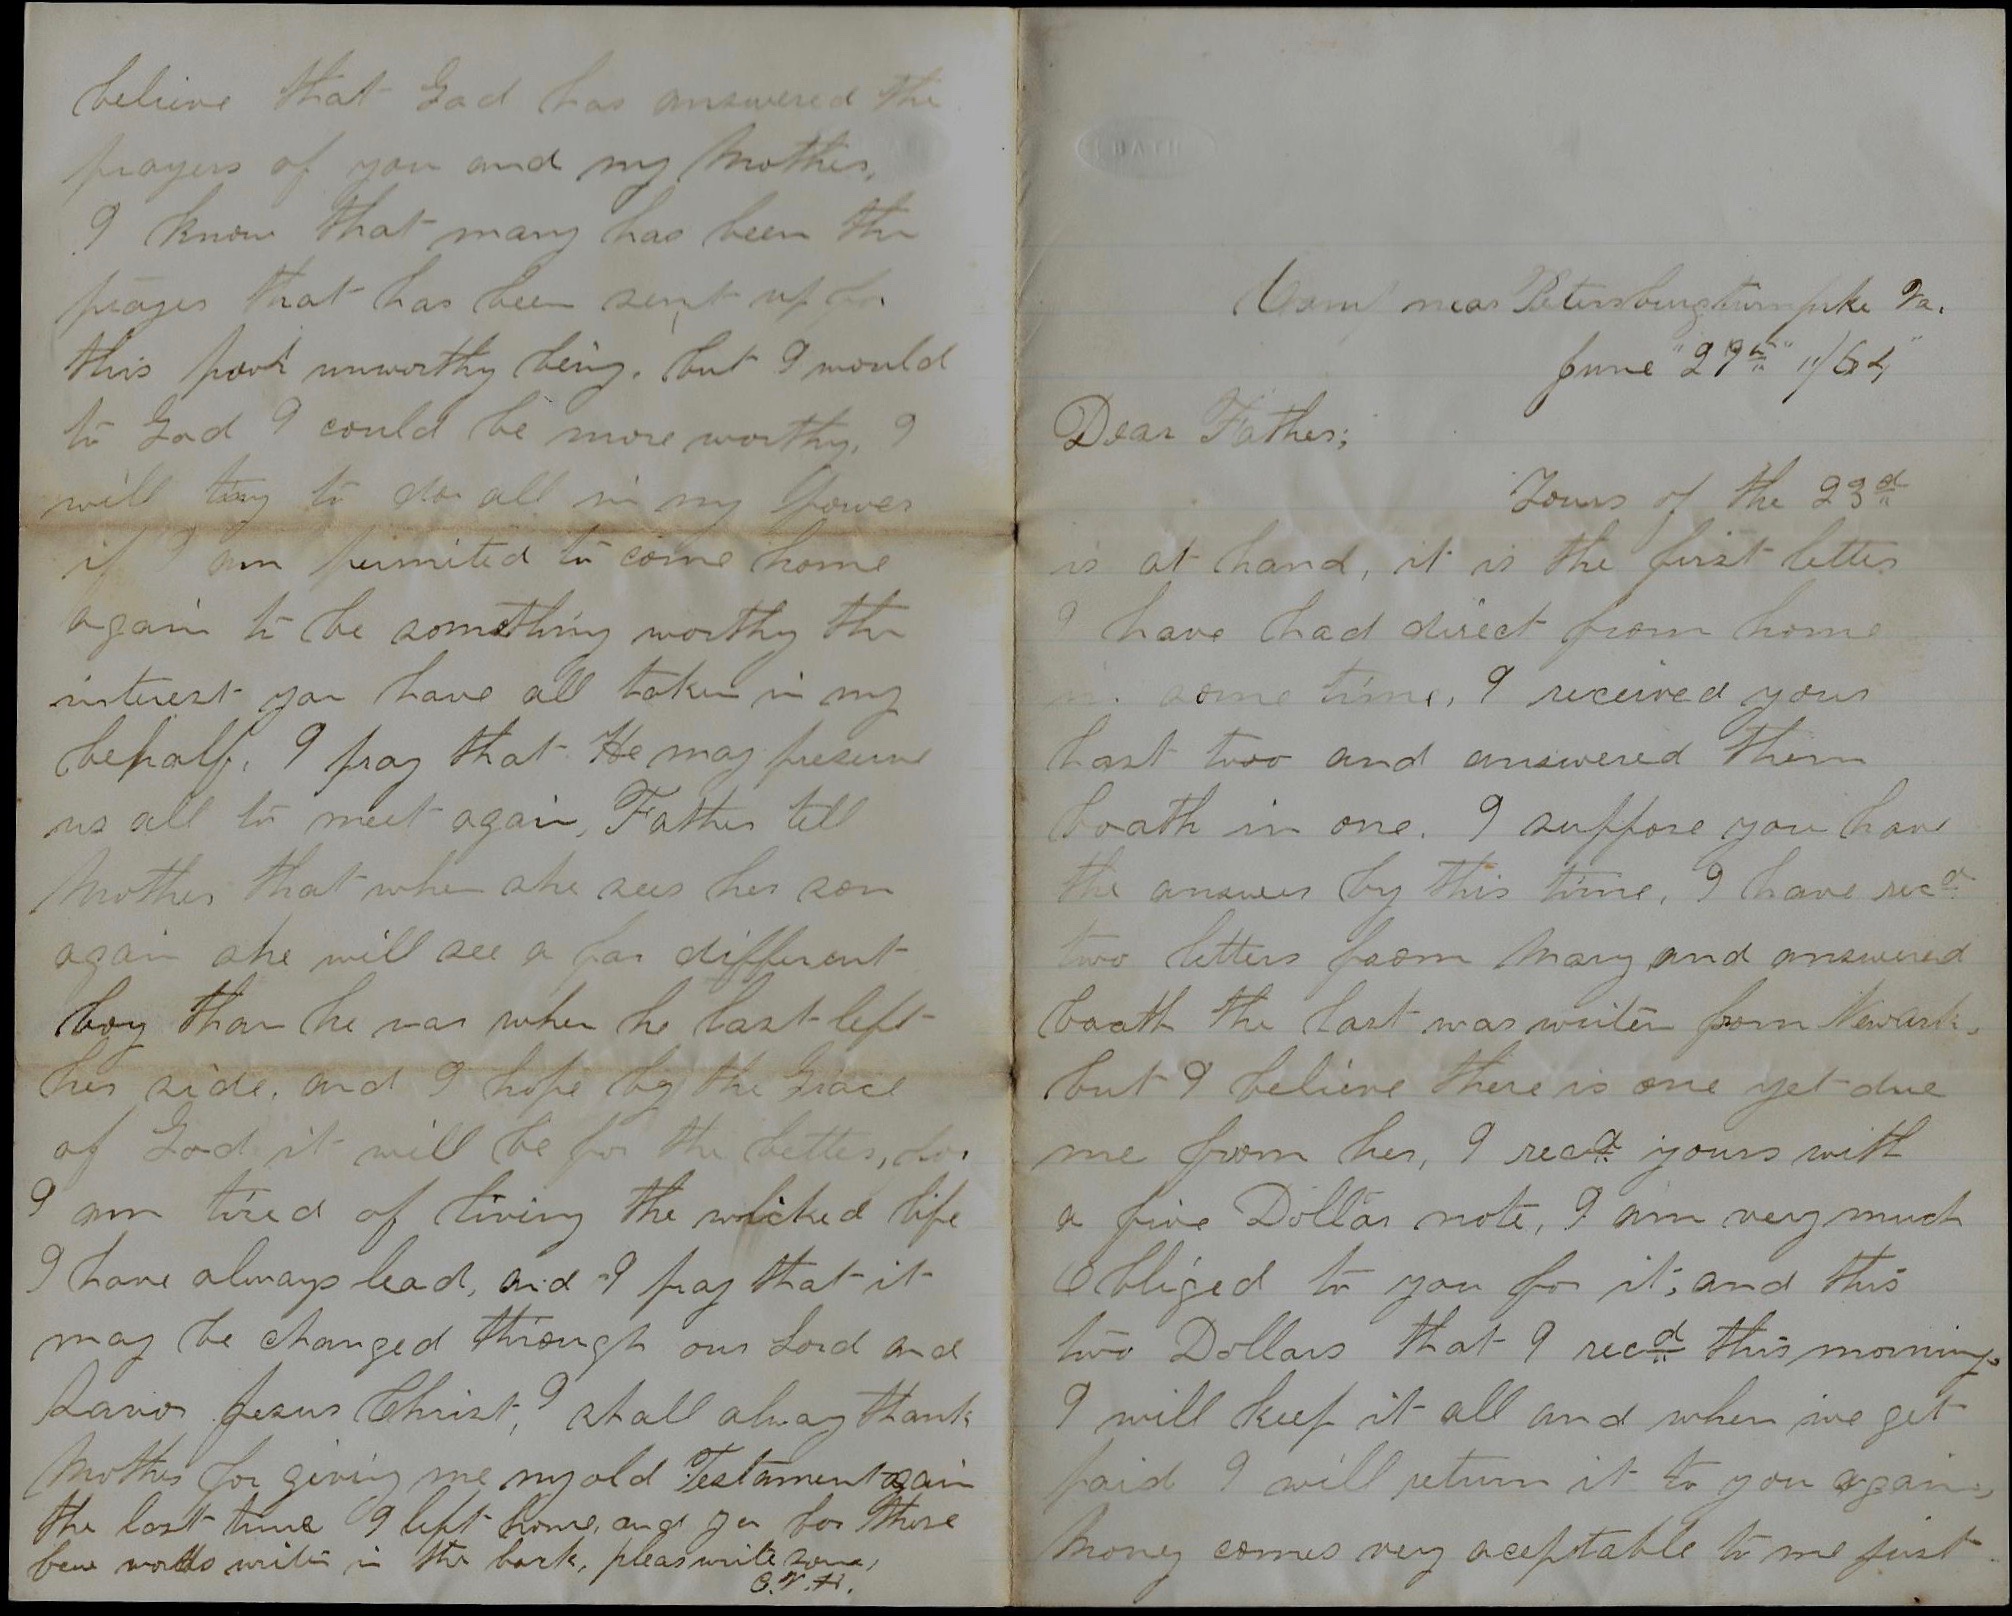 BATH
Camp near Petersburg turnpike Va.
June "27th" "/64"
Dear Father;
Yours of the 23d
is at hand, it is the first letter
I have had direct from home
in some time, I received your
last two and answered them
boath in one. I suppose you have
the answer by this time, I have recd
two letters from Mary and answered
boath the last was writen from Newark,
but I believe there is one yet due
me from her, I recd yours with
a five Dollar note, I am very much
Obliged to you for it, and this
two Dollars that I recd this morning,
I will keep it all and when we get
paid I will return it to you again,
Money comes very aceptable to me just
believe that God has answered the
prayers of you and my Mother,
I know that many has been the
prayer that has been sent up for
this poor unworthy being, but I would
to God I could be more worthy, I
will try to do all in my power
if I am permited to come home
again to be something worthy the
interest you have all taken in my
behalf, I pray that He may preserve
us all to meet again, Father tell
Mother that when she sees her son
again she will see a far different
boy than he was when he last left
her side, and I hope by the Grace
of God it will be for the better, for
I am tired of living the wicked life
I have always lead, and I pray that it
may be changed through our Lord and
Savior Jesus Christ, I shall alway thank
Mother for giving me my old Testament again
the last time I left home, and you for those
few words writen in the back, pleas write soon,
C.V.H.